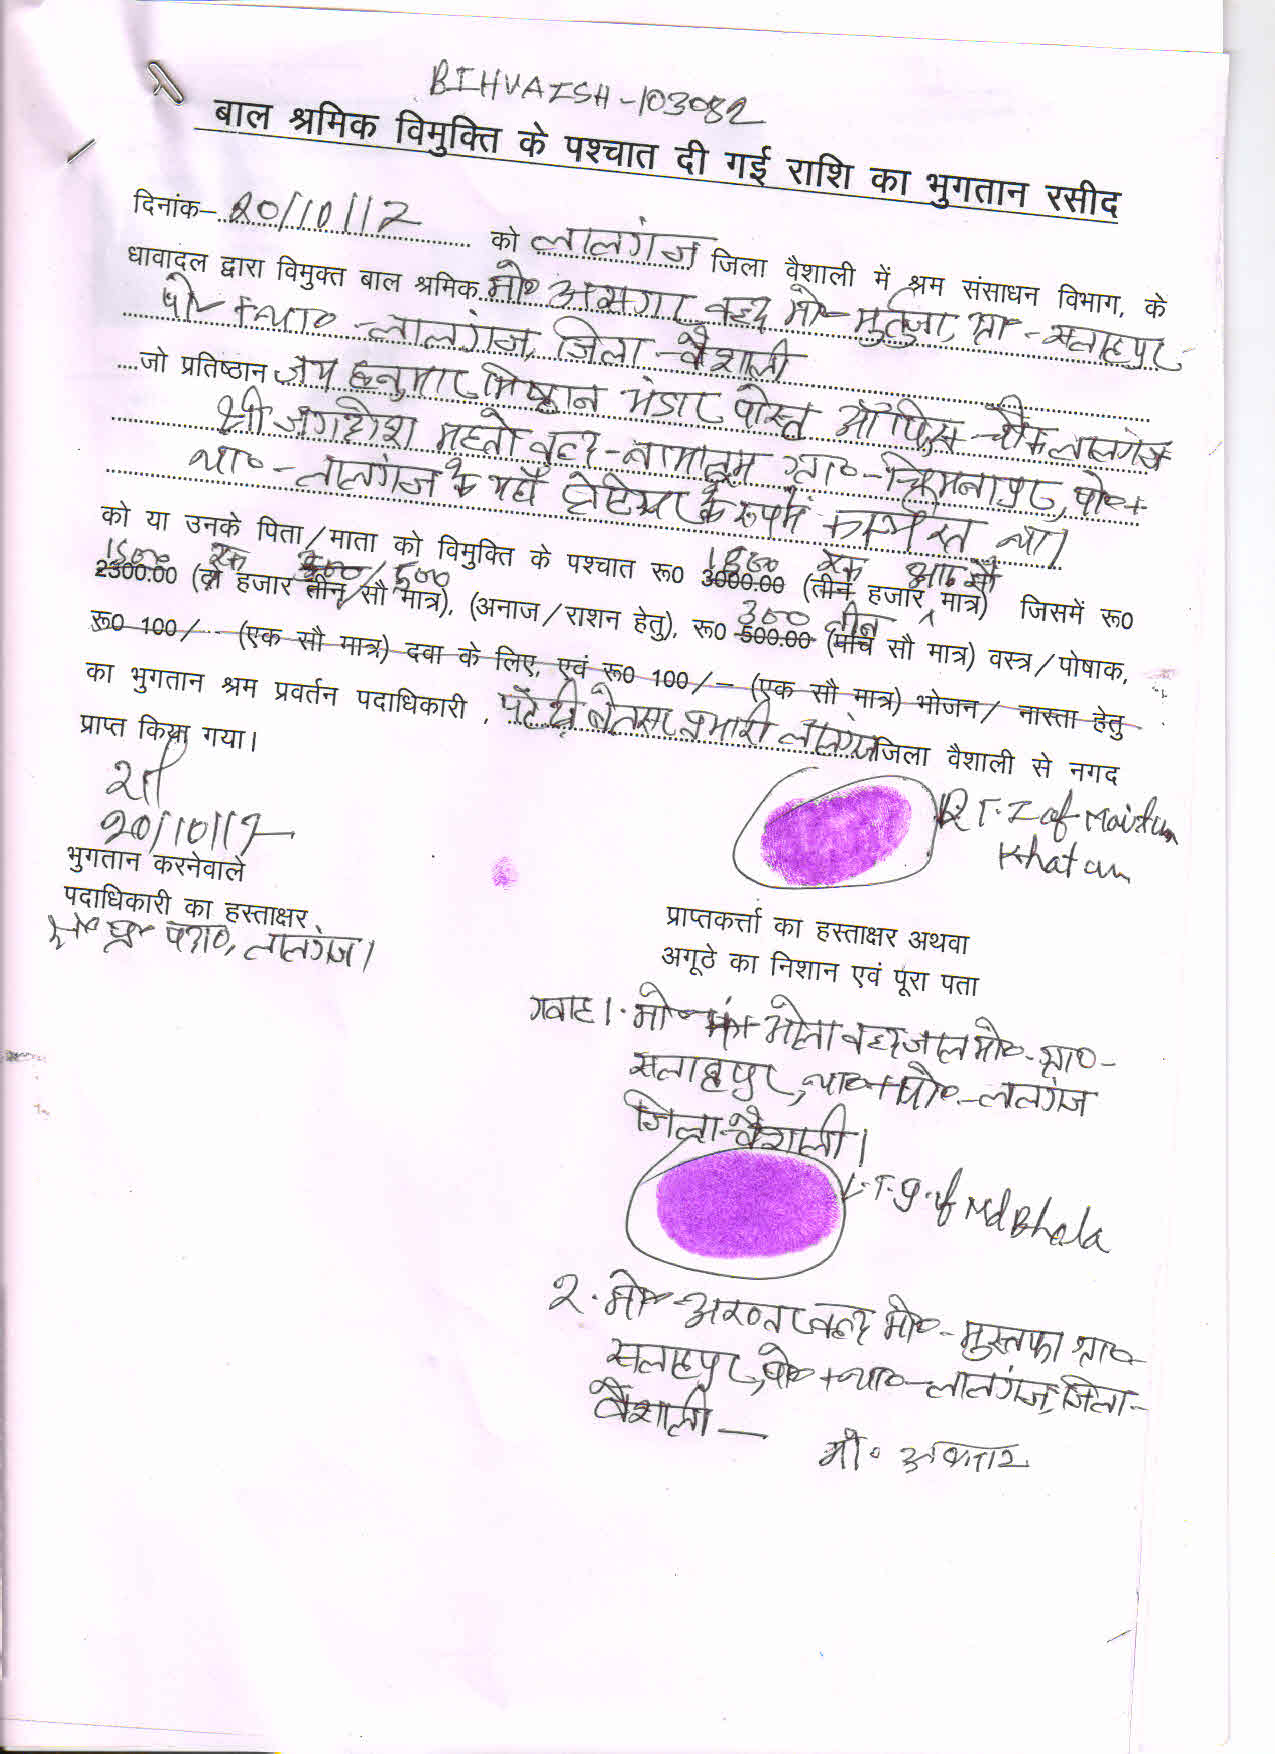 BIHVAISH-103082
बाल श्रमिक विमुक्ति के पश्चात दी गई राशि का भुगतान रसीद
दिनांक– 20/10/17 को लालगंज जिला वैशाली में श्रम संसाधन विभाग, के
धावादल द्वारा विमुक्त बाल श्रमिक मो० असगर वल्द मो०-मुर्तुजा, ग्रा०-सलाहपुर,
पो०+था०-लालगंज, जिला-वैशाली
....जो प्रतिष्ठान जय हनुमान मिष्ठान भंडार पोस्ट ऑफिस चौक लालगंज
श्री जगदीश महतो वल्द-नामालूम ग्रा०- पो०+
था०-लालगंज के यहाँ के रूप में कार्यरत था।
को या उनके पिता/माता को विमुक्ति के पश्चात रू0 1800 3000.00 (तीन एक हजार आठ सौ मात्र) जिसमें रू0
1500 2300.00 (दो एक हजार तीन 500/500 सौ मात्र), (अनाज/राशन हेतु), रू0 300 500.00 (पांच तीन सौ मात्र) वस्त्र/पोषाक,
रू0 100/-- (एक सौ मात्र) दवा के लिए, एवं रू0 100/– (एक सौ मात्र) भोजन/ नास्ता हेतु
का भुगतान श्रम प्रवर्तन पदाधिकारी , प्रभारी लालगंज जिला वैशाली से नगद
प्राप्त किया गया।
20/10/17
भुगतान करनेवाले
पदाधिकारी का हस्ताक्षर
लालगंज।
R.T.I of Maistun
Khatun
प्राप्तकर्त्ता का हस्ताक्षर अथवा
अगूठे का निशान एवं पूरा पता
गवाह 1. मो० भोला वल्द जान मो०-ग्रा०-
सलाहपुर, था०+पो०-लालगंज
जिला-वैशाली।
L.T.I of Md Bhola
2. मो०-अख्तर वल्द मो०-मुस्तफा ग्रा०-
सलाहपुर, पो०+था०-लालगंज, जिला-
वैशाली –
मो० अखतार